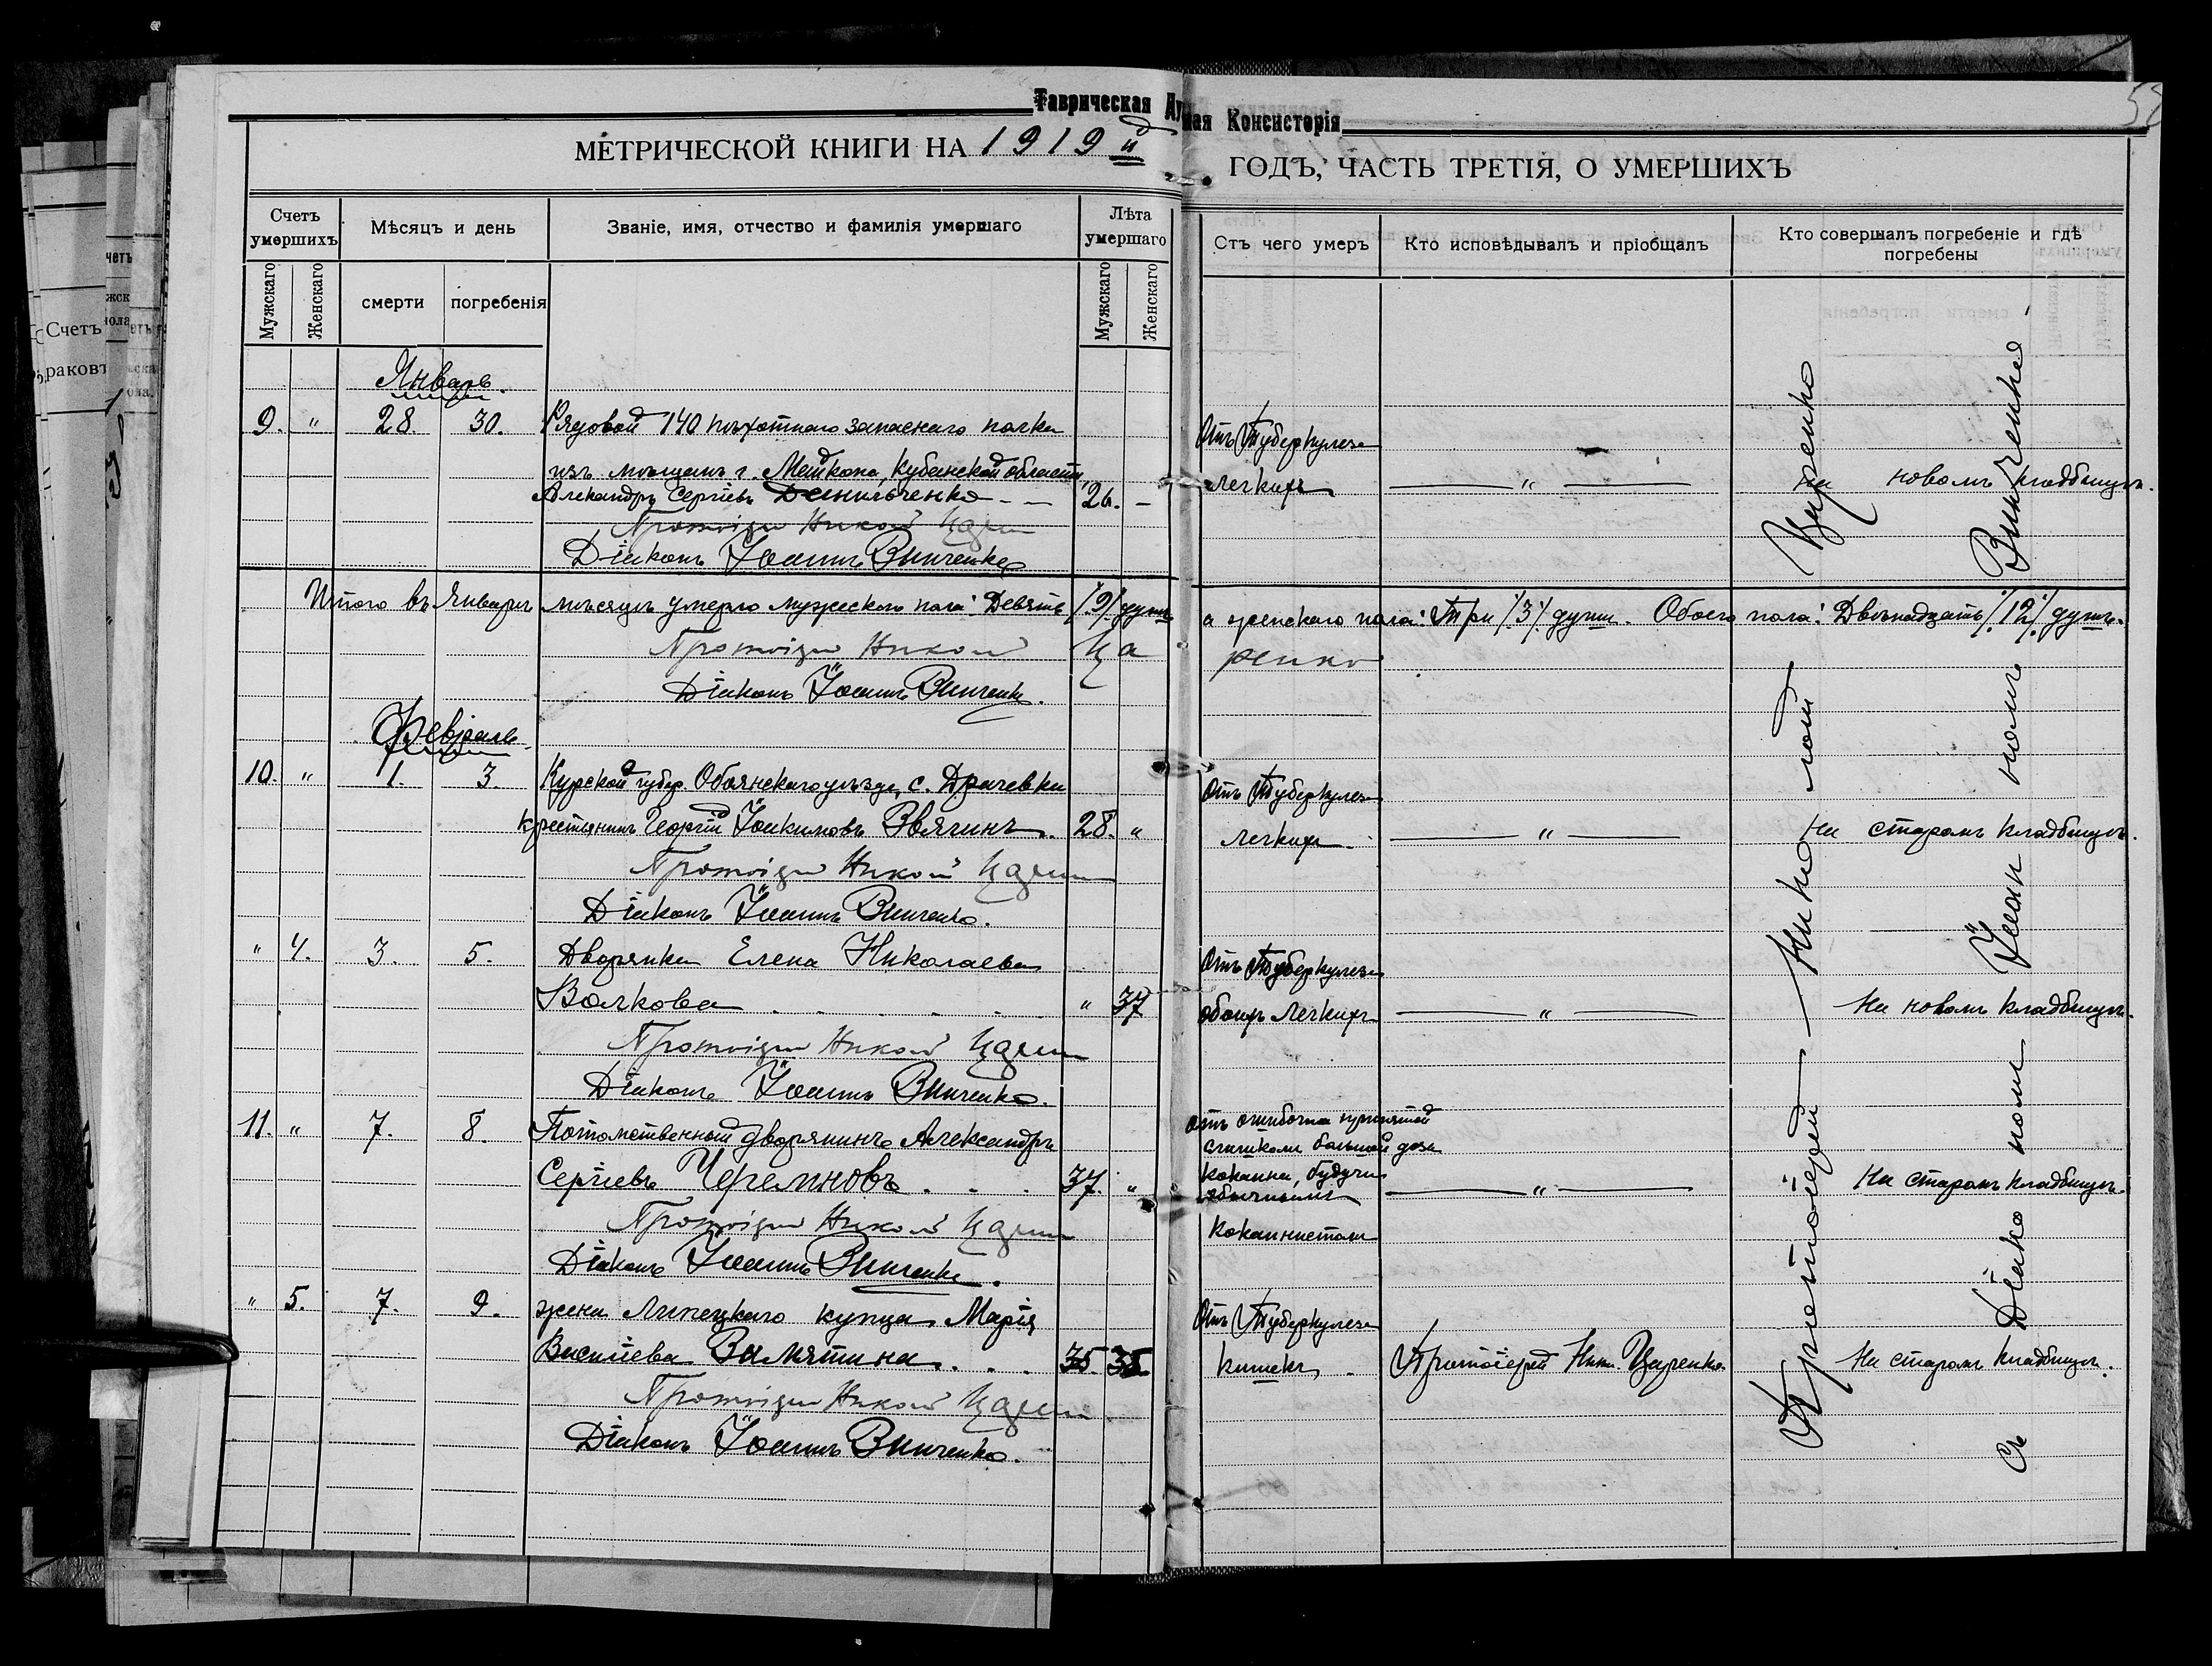 Таврическая Духовная Консисторія
МЕТРИЧЕСКОЙ КНИГИ НА 1919й ГОДЪ, ЧАСТЬ ТРЕТІЯ, О УМЕРШИХЪ
Счетъ умершихъ
Мѣсяцъ и день
Званіе, имя, отчество и фамилія умершаго
Лѣта умершаго
Отъ чего умеръ
Кто исповѣдывалъ и пріобщалъ
Кто совершалъ погребеніе и гдѣ погребены
Мужскаго
Женскаго
смерти
погребенія
Мужскаго
Женскаго
Январь.
9. " 28. 30. Рядовой 140 пѣхотнаго запаснаго полка Отъ Туберкулеза
изъ мѣщанъ г. Майкопа, Кубанской области,
Александръ Сергіевъ Данильченко - - 26. - легкихъ — " — На новомъ кладбищѣ.
Протоіерей Николай Царенко
Діаконъ Іоаннъ Винченко
Итого въ Январѣ мѣсяцѣ умерло мужескаго пола: Девять /9/ душъ а женскаго пола: Три /3/ души. Обоего пола: Двѣнадцать /12/ душъ.
Протоіерей Николай Царенко
Діаконъ Іоаннъ Винченко.
Февраль.
10. " 1. 3. Курской губер. Обоянскаго уѣзда, с. Драчевки Отъ Туберкулеза
крестьянинъ Георгій Іоакимовъ Звягинъ. 28. " легкихъ. — " — На старомъ кладбищѣ.
Протоіерей Николай Царенко
Діаконъ Іоаннъ Винченко.
" 4. 3. 5. Дворянка Елена Николаева Отъ Туберкулеза
Волкова . . . . . " 37 обоихъ легкихъ — " — На новомъ кладбищѣ.
Протоіерей Николай Царенко
Діаконъ Іоаннъ Винченко.
11. " 7. 8. Потомственный дворянинъ Александръ отъ ошибочно принятой
слишкомъ большой дозы
Сергіевъ Черемновъ . . . 37. " кокаина, будучи
обычнымъ — " — На старомъ кладбищѣ.
Протоіерей Николай Царенко
кокаинистомъ
Діаконъ Іоаннъ Винченко.
" 5. 7. 9. жена Липецкаго купца Марія Отъ Туберкулеза
Васильева Замятина . . . 35. 35 кишекъ. Протоіерей Ник. Царенко. На старомъ кладбищѣ.
Протоіерей Николай Царенко
Діаконъ Іоаннъ Винченко.
Протоіерей Николай Царенко
Съ Діакономъ Іоанномъ Винченко.
Счетъ